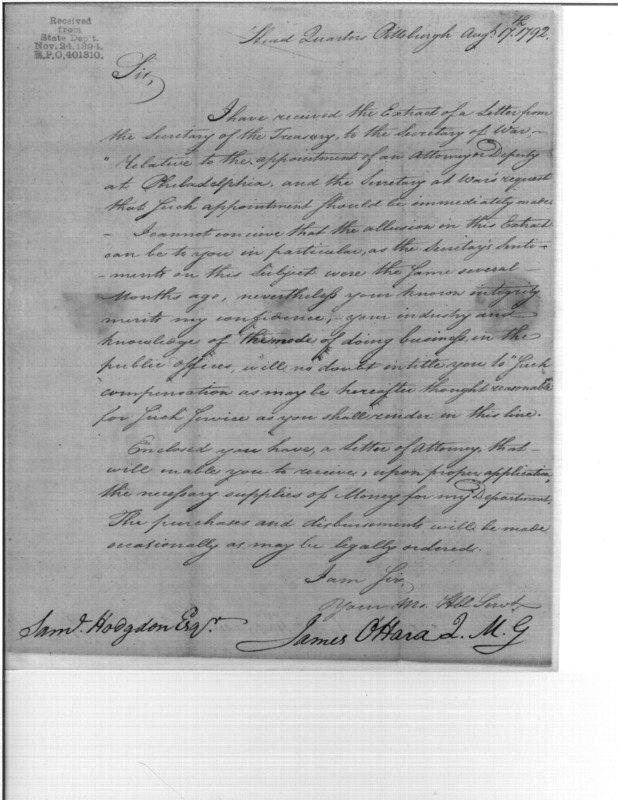 Received
from
State Dep't.
Nov. 24, 1894.
R.P.O. 401810.
Head Quarters Pittsburgh Augt. 17th. 1792.
Sir,
I have received the Extract of a Letter from
the Secretary of the Treasury, to the Secretary of War, —
"Relative to the appointment of an Attorney or Deputy
at Philadelphia, and the Secretary at War's request
that such appointment should be immediately made.
- I cannot concieve that the allusion in this Extract
can be to you in particular, as the Secretary's Senti-
-ments on this Subject were the same several —
Months ago, nevertheless your known integrity
merits my confidence, your industry and
knowledge of the mode of doing business in the
public offices, will no doubt intitle you to "such
compensation as may be hereafter thought reasonable
for such service as you shall render in this line.
Enclosed you have, a Letter of Attorney, that —
will enable you to receive, upon proper application,
the necessary supplies of Money for my Department.
The purchases and disbursments will be made
occasionally as may be legally ordered.
I am Sir,
Your Mo. Hbl. Servt.
Saml. Hodgdon Esqr.
James O'Hara Q. M. G